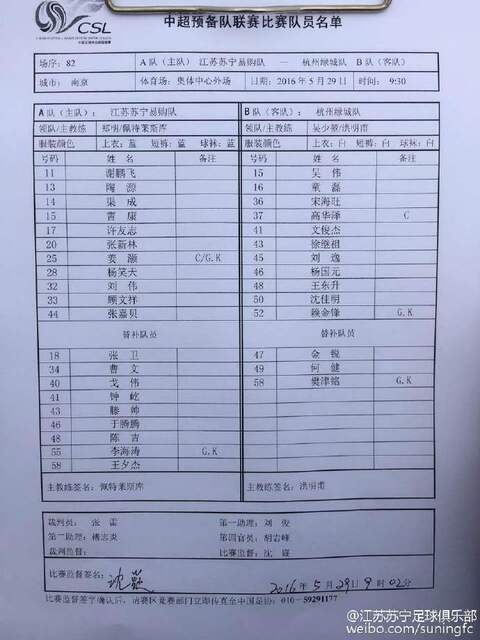 CSL
中超预备队联赛比赛队员名单
场序：82 A队（主队） 江苏苏宁易购队 — 杭州绿城队 B队（客队）
城市：南京 体育场：奥体中心外场 日期：2016年5月29日 时间：9:30
A队（主队）： 江苏苏宁易购队 B队（客队）： 杭州绿城队
领队/主教练 郑明/佩特莱斯库 领队/主教练 吴少聪/洪明甫
服装颜色 上衣：蓝 短裤：蓝 球袜：蓝 服装颜色 上衣：白 短裤：白 球袜：白
号码 姓名 备注 号码 姓名 备注
11 谢鹏飞 15 吴伟
13 陶源 16 童磊
14 渠成 36 宋海旺
15 青康 37 高华泽 C
17 许友志 41 文俊杰
20 张新林 43 徐继祖
25 姜灏 C/G.K 45 刘逸
28 杨笑天 46 杨国元
32 刘伟 48 王东升
33 顾文祥 50 沈佳明
44 张嘉贝 52 赖金锋 G.K
替补队员 替补队员
18 张卫 47 金锐
34 曹文 49 何健
40 戈伟 58 樊津铭 G.K
41 钟屹
43 滕帅
46 于腾腾
48 陈吉
55 李海涛 G.K
58 王夕杰
主教练签名：佩特莱斯库 主教练签名：洪明甫
裁判员： 张雷 第一助理：刘俊
第二助理：傅志炎 第四官员：胡岩峰
裁判监督： 比赛监督：沈巍
比赛监督签名： 沈巍 2016年5月29日9时02分
比赛监督签字确认后，请赛区竞赛部门立即传真至中国足协：010-59291177
@江苏苏宁足球俱乐部
weibo.com/suningfc